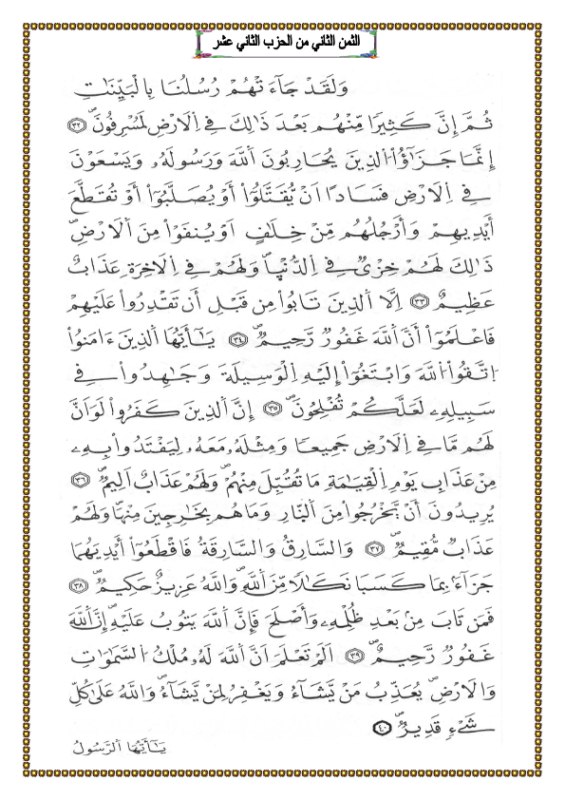 الثمن الثاني من الحزب الثاني عشر
وَلَقَدْ جَآءَتْهُمْ رُسُلُنَا بِالْبَيِّنَٰتِ
ثُمَّ إِنَّ كَثِيرًا مِّنْهُم بَعْدَ ذَٰلِكَ فِے اِلَارْضِ لَمُسْرِفُونَۖ ٣٢
إِنَّمَا جَزَٰٓؤُاْ اُلذِينَ يُحَارِبُونَ اَللَّهَ وَرَسُولَهُۥ وَيَسْعَوْنَ
فِے اِلَارْضِ فَسَادًا اَنْ يُّقَتَّلُوٓاْ أَوْ يُصَلَّبُوٓاْ أَوْ تُقَطَّعَ
أَيْدِيهِمْ وَأَرْجُلُهُم مِّنْ خِلَٰفٍ اَوْ يُنفَوْاْ مِنَ اَلَارْضِۖ
ذَٰلِكَ لَهُمْ خِزْيٌ فِے اِلدُّنْيَاۖ وَلَهُمْ فِے اِلَاخِرَةِ عَذَابٌ
عَظِيمٌ ٣٣ اِلَّا اَلذِينَ تَابُواْ مِن قَبْلِ أَن تَقْدِرُواْ عَلَيْهِمْ
فَاعْلَمُوٓاْ أَنَّ اَللَّهَ غَفُورٌ رَّحِيمٌۖ ٣٤ يَٰٓأَيُّهَا اَلذِينَ ءَامَنُواْ
اُتَّقُواْ اُللَّهَ وَابْتَغُوٓاْ إِلَيْهِ اِلْوَسِيلَةَ وَجَٰهِدُواْ فِے
سَبِيلِهِۦ لَعَلَّكُمْ تُفْلِحُونَۖ ٣٥ إِنَّ اَلذِينَ كَفَرُواْ لَوَ اَنَّ
لَهُم مَّا فِے اِلَارْضِ جَمِيعًا وَمِثْلَهُۥ مَعَهُۥ لِيَفْتَدُواْ بِهِۦ
مِنْ عَذَابِ يَوْمِ اِلْقِيَٰمَةِ مَا تُقُبِّلَ مِنْهُمْۖ وَلَهُمْ عَذَابٌ اَلِيمٌۖ ٣٦
يُرِيدُونَ أَنْ يَّخْرُجُواْ مِنَ اَلنَّارِ وَمَا هُم بِخَٰرِجِينَ مِنْهَاۖ وَلَهُمْ
عَذَابٌ مُّقِيمٌۖ ٣٧ وَالسَّارِقُ وَالسَّارِقَةُ فَاقْطَعُوٓاْ أَيْدِيَهُمَا
جَزَآءَۢ بِمَا كَسَبَا نَكَٰلًا مِّنَ اَللَّهِۖ وَاللَّهُ عَزِيزٌ حَكِيمٌۖ ٣٨
فَمَن تَابَ مِنۢ بَعْدِ ظُلْمِهِۦ وَأَصْلَحَ فَإِنَّ اَللَّهَ يَتُوبُ عَلَيْهِۖ إِنَّ اَللَّهَ
غَفُورٌ رَّحِيمٌۖ ٣٩ اَلَمْ تَعْلَمَ اَنَّ اَللَّهَ لَهُۥ مُلْكُ اُلسَّمَٰوَٰتِ
وَالَارْضِۖ يُعَذِّبُ مَنْ يَّشَآءُ وَيَغْفِرُ لِمَنْ يَّشَآءُۖ وَاللَّهُ عَلَىٰ كُلِّ
شَےْءٍ قَدِيرٌۖ ٤٠
يَٰٓأَيُّهَا اَلرَّسُولُ